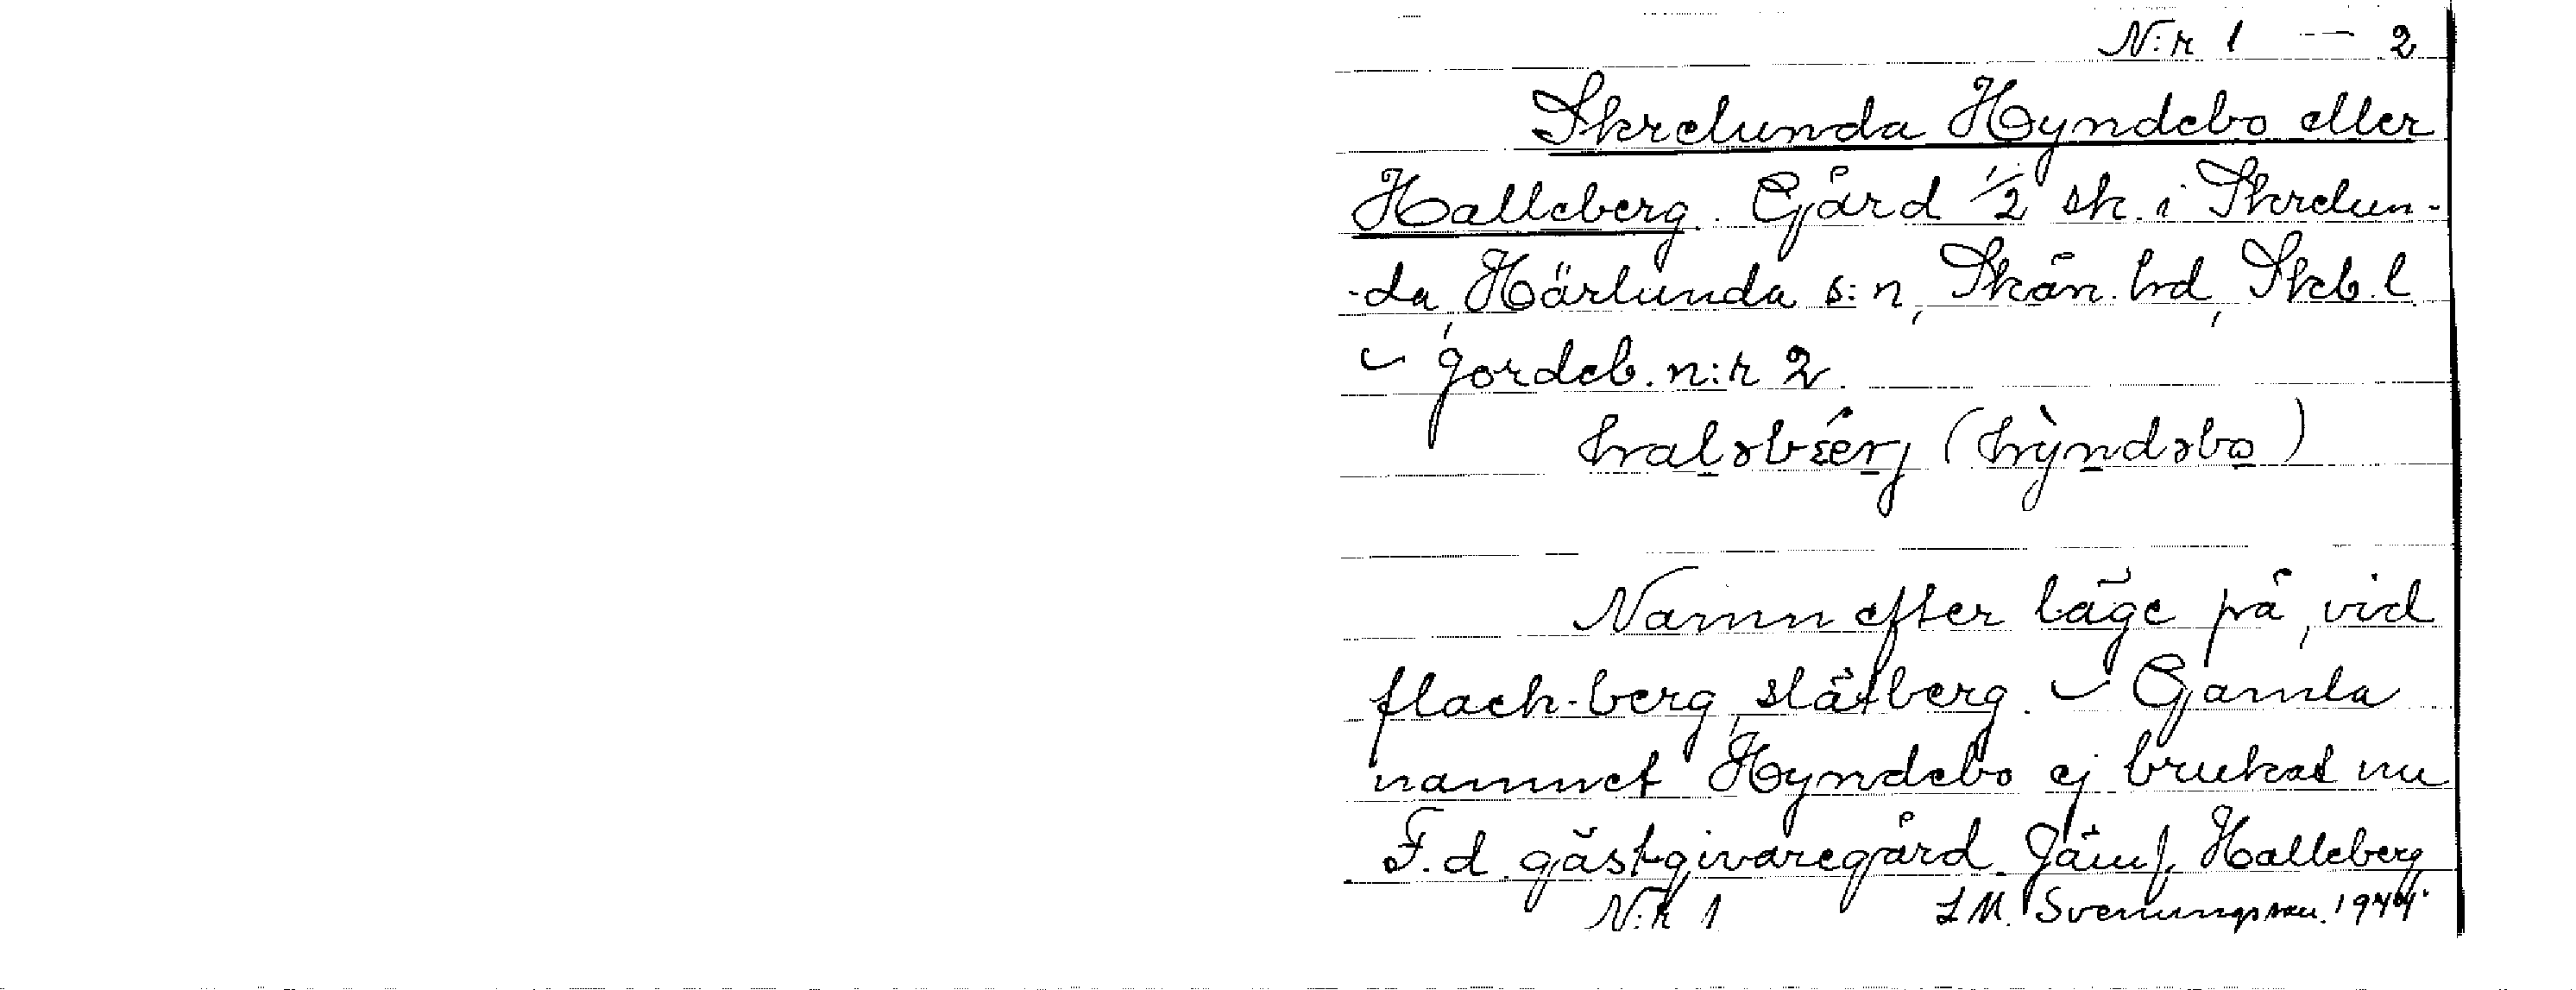 N:r 1 — 2
Skrelunda Hyndebo eller
Halleberg. Gård 1/2 sk. i Skrelun-
-da, Härlunda s:n, Skån. hd, Skb. l
- Jordeb. n:r 2.
halɘbærj (hỳndəbo)
Namn efter läge på, vid
flack-berg, slätberg. - Gamla
namnet Hyndebo ej brukat nu
F.d. gästgivaregård. Jämf. Halleberg
N:r 1 L M. Svenungsson. 1944.